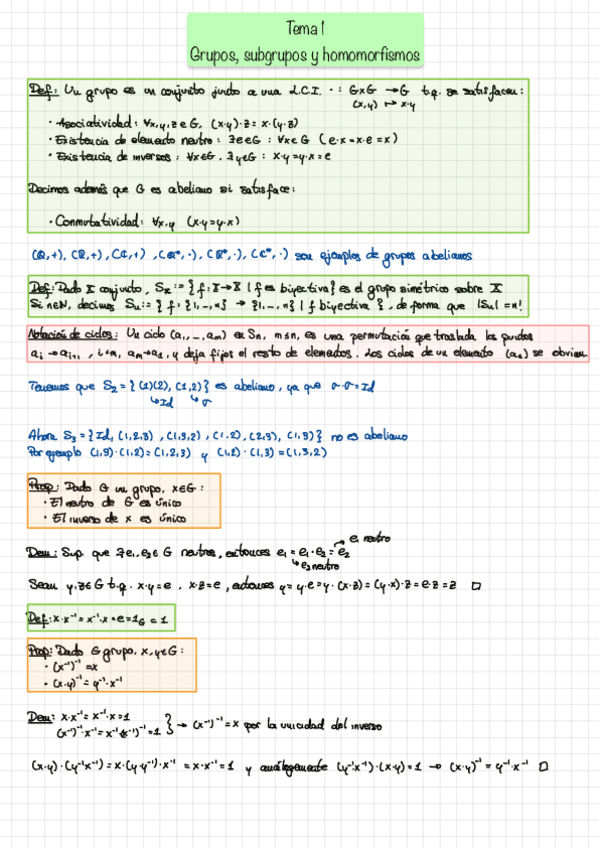 Tema 1
Grupos, subgrupos y homomorfismos
Def: Un grupo es un conjunto junto a una L.C.I. · : G×G → G t.q. se satisfacen:
(x,y) ↦ x·y
· Asociatividad: ∀x,y,z∈G, (x·y)·z = x·(y·z)
· Existencia de elemento neutro: ∃e∈G: ∀x∈G (e·x=x·e=x)
· Existencia de inversos: ∀x∈G, ∃y∈G: x·y=y·x=e
Decimos además que G es abeliano si satisface:
· Conmutatividad: ∀x,y (x·y=y·x)
(Q,+), (R,+), (C,+), (Q*,·), (R*,·), (C*,·) son ejemplos de grupos abelianos
Def: Dado X conjunto, Sx := {f: X→X | f es biyectiva} es el grupo simétrico sobre X
Si n∈N, decimos Sn := {f: {1,–,n} → {1,–,n} | f biyectiva}, de forma que |Sn| = n!
Notación de ciclos: Un ciclo (a₁,–,am) en Sn, m≤n, es una permutación que traslada los puntos
ai → ai+1, i<m, am→a₁, y deja fijos el resto de elementos. Los ciclos de un elemento (a₁) se obvian.
Tenemos que S₂ = {(1)(2), (1,2)} es abeliano, ya que σ·σ=Id
↳Id ↳σ
Ahora S₃ = {Id, (1,2,3), (1,3,2), (1,2), (2,3), (1,3)} no es abeliano
Por ejemplo (1,3)·(1,2) = (1,2,3) y (1,2)·(1,3) = (1,3,2)
Prop: Dado G un grupo, x∈G:
· El neutro de G es único
· El inverso de x es único
Dem: Sup. que ∃e₁,e₂∈G neutros, entonces e₁ = e₁·e₂ = e₂
e₁ neutro
↳e₂ neutro
Sean y,z∈G t.q. x·y=e, x·z=e, entonces y=y·e=y·(x·z)=(y·x)·z=e·z=z □
Def: x·x⁻¹=x⁻¹·x=e=1G=1
Prop: Dado G grupo, x,y∈G:
· (x⁻¹)⁻¹=x
· (x·y)⁻¹=y⁻¹·x⁻¹
Dem: x·x⁻¹=x⁻¹·x=1
(x⁻¹)⁻¹·x⁻¹=x⁻¹·(x⁻¹)⁻¹=1 } → (x⁻¹)⁻¹=x por la unicidad del inverso
(x·y)·(y⁻¹x⁻¹)=x·(y·y⁻¹)·x⁻¹=x·x⁻¹=1 y análogamente (y⁻¹x⁻¹)·(x·y)=1 → (x·y)⁻¹=y⁻¹·x⁻¹ □